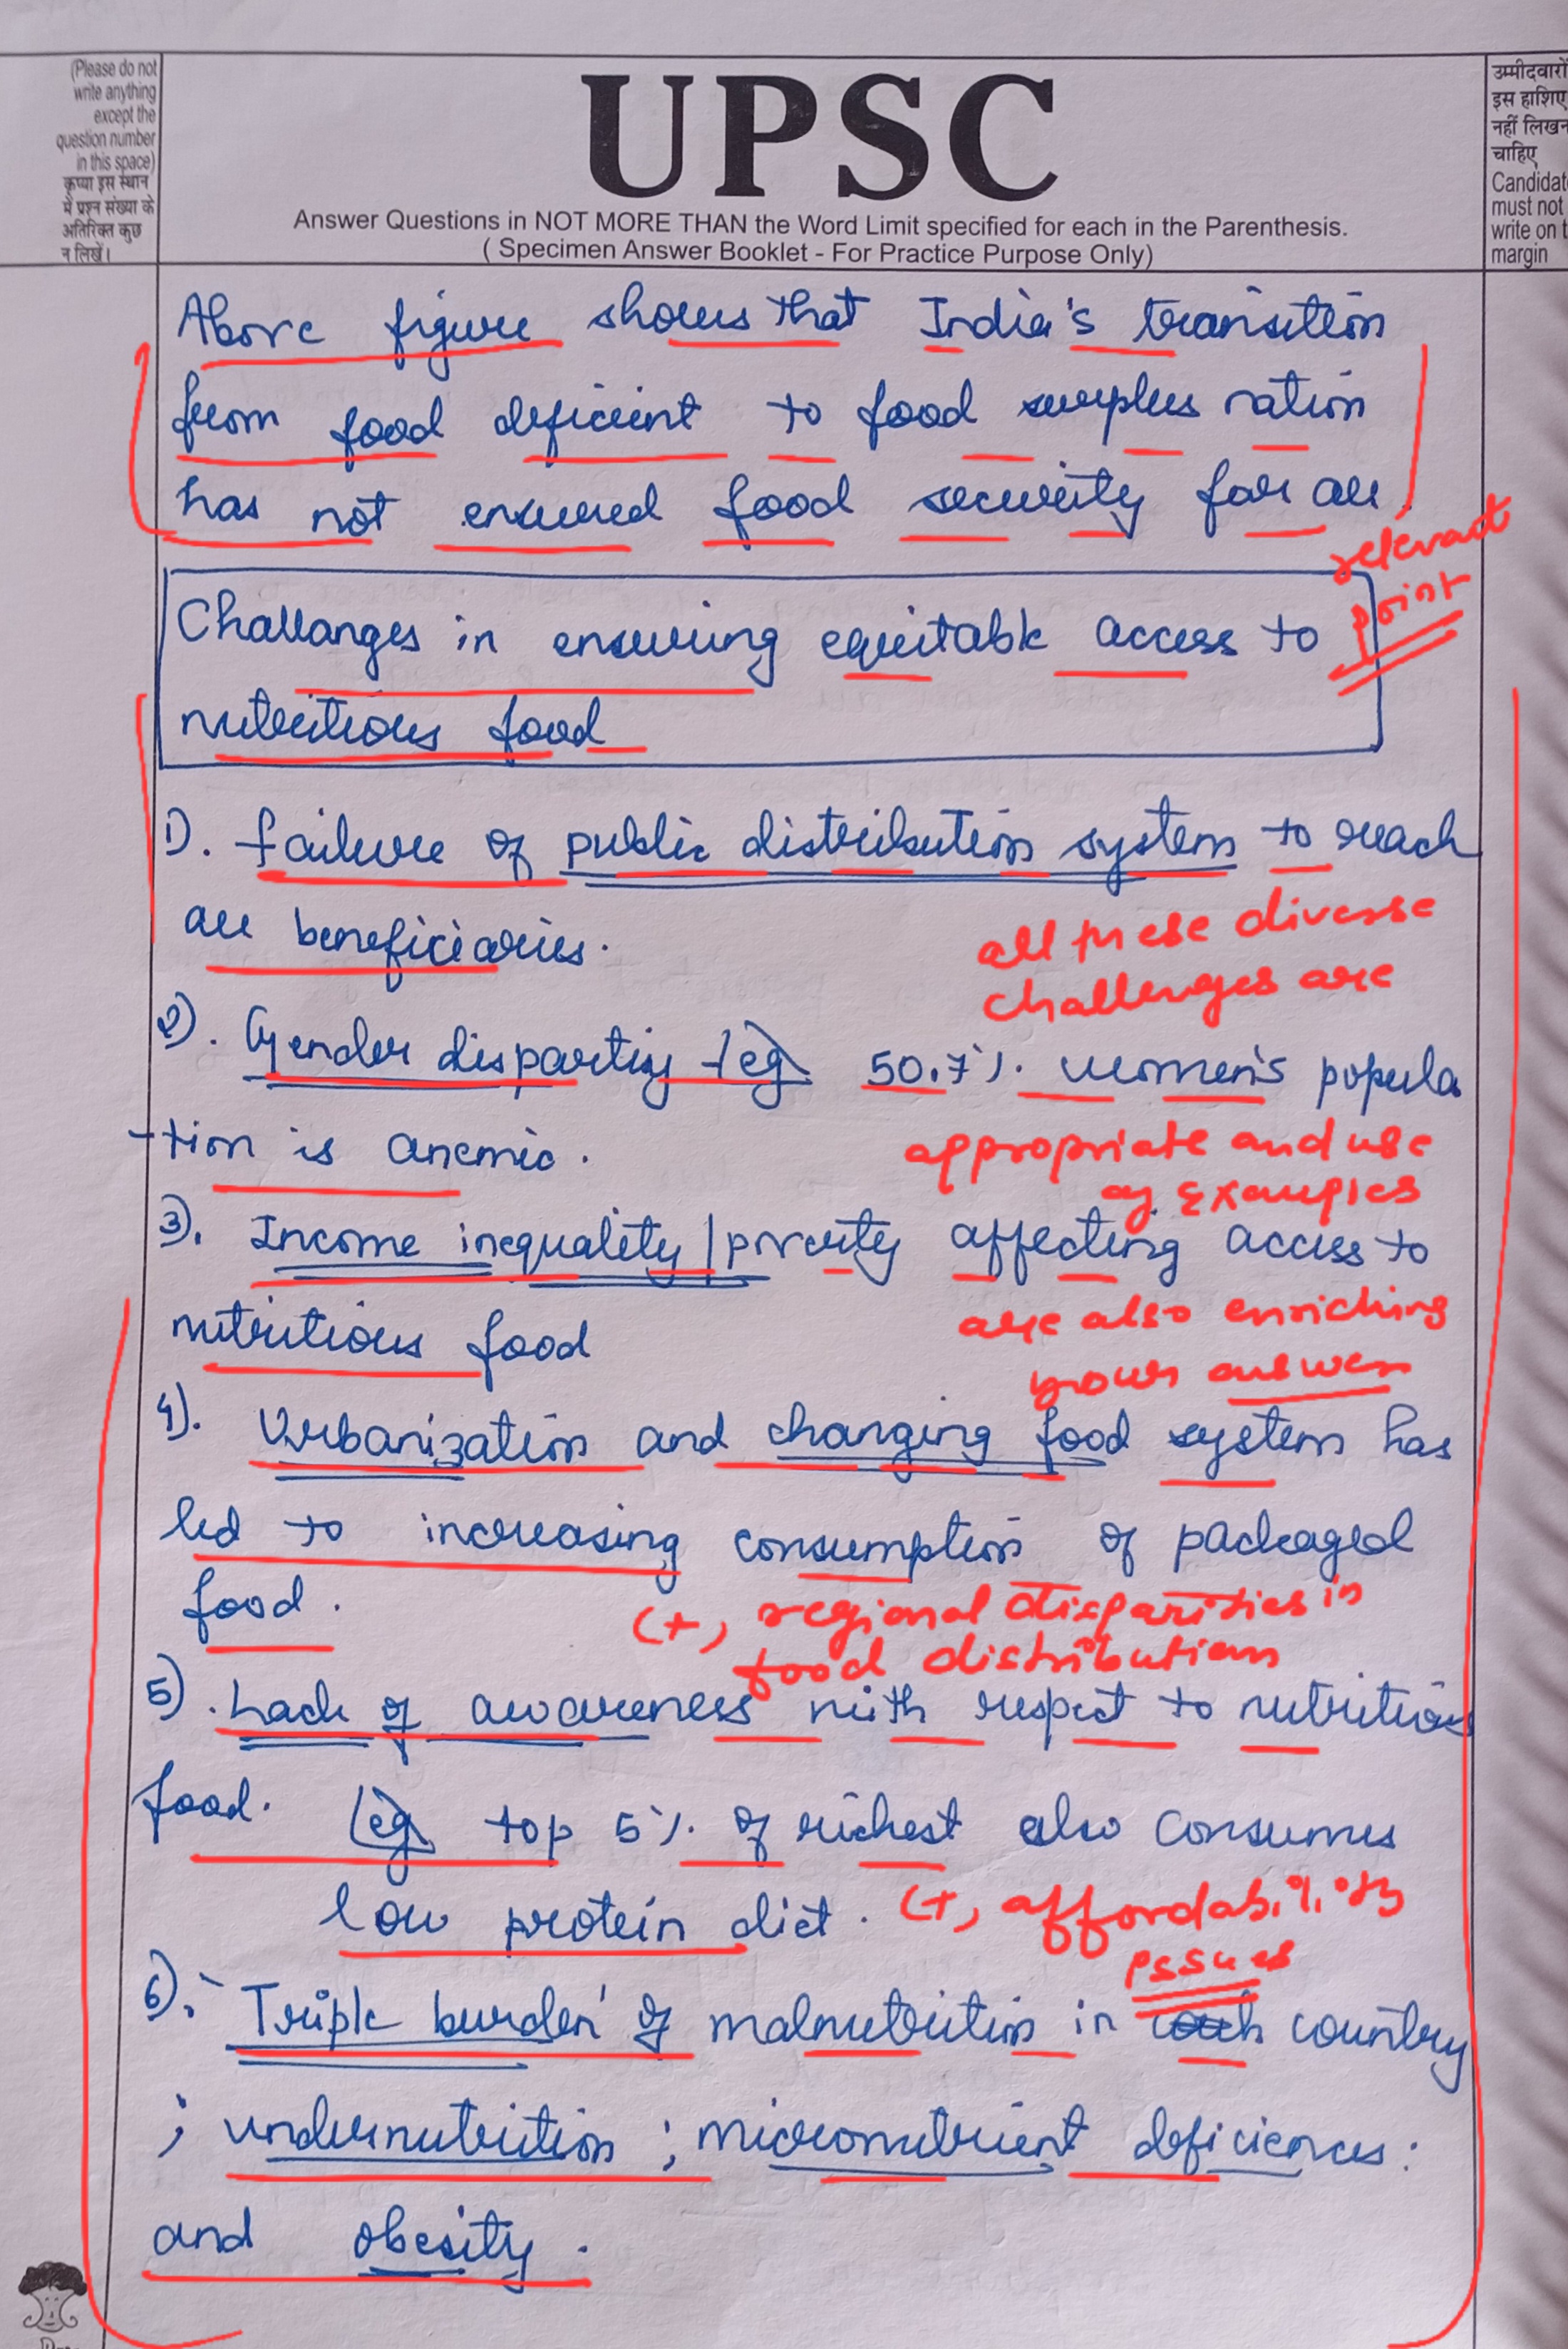 (Please do not
write anything
except the
question number
in this space)
कृप्या इस स्थान
में प्रश्न संख्या के
अतिरिक्त कुछ
न लिखें।
UPSC
Answer Questions in NOT MORE THAN the Word Limit specified for each in the Parenthesis.
( Specimen Answer Booklet - For Practice Purpose Only)
उम्मीदवारों
इस हाशिए
नहीं लिखन
चाहिए
Candidat
must not
write on t
margin
Above figure shows that India's transition
from food deficient to food surplus nation
has not ensured food security for all
relevant
point
Challanges in ensuring equitable access to
nutritious food
1). failure of public distribution system to reach
all beneficiaries.
all these diverse
challenges are
2). Gender disparity eg 50.7%. women's popula
-tion is anemic.
appropriate and use
of Examples
3). Income inequality/poverty affecting access to
nutritious food
are also enriching
your answer
4). Urbanization and changing food system has
led to increasing consumption of packaged
food.
(+, regional disparities in
food distribution
5). Lack of awareness with respect to nutritious
food. eg top 5%. of richest also consumes
low protein diet.
(+, affordability
issues
6). 'Triple burden' of malnutrition in country
; undernutrition ; micronutrient deficiences:
and obesity.